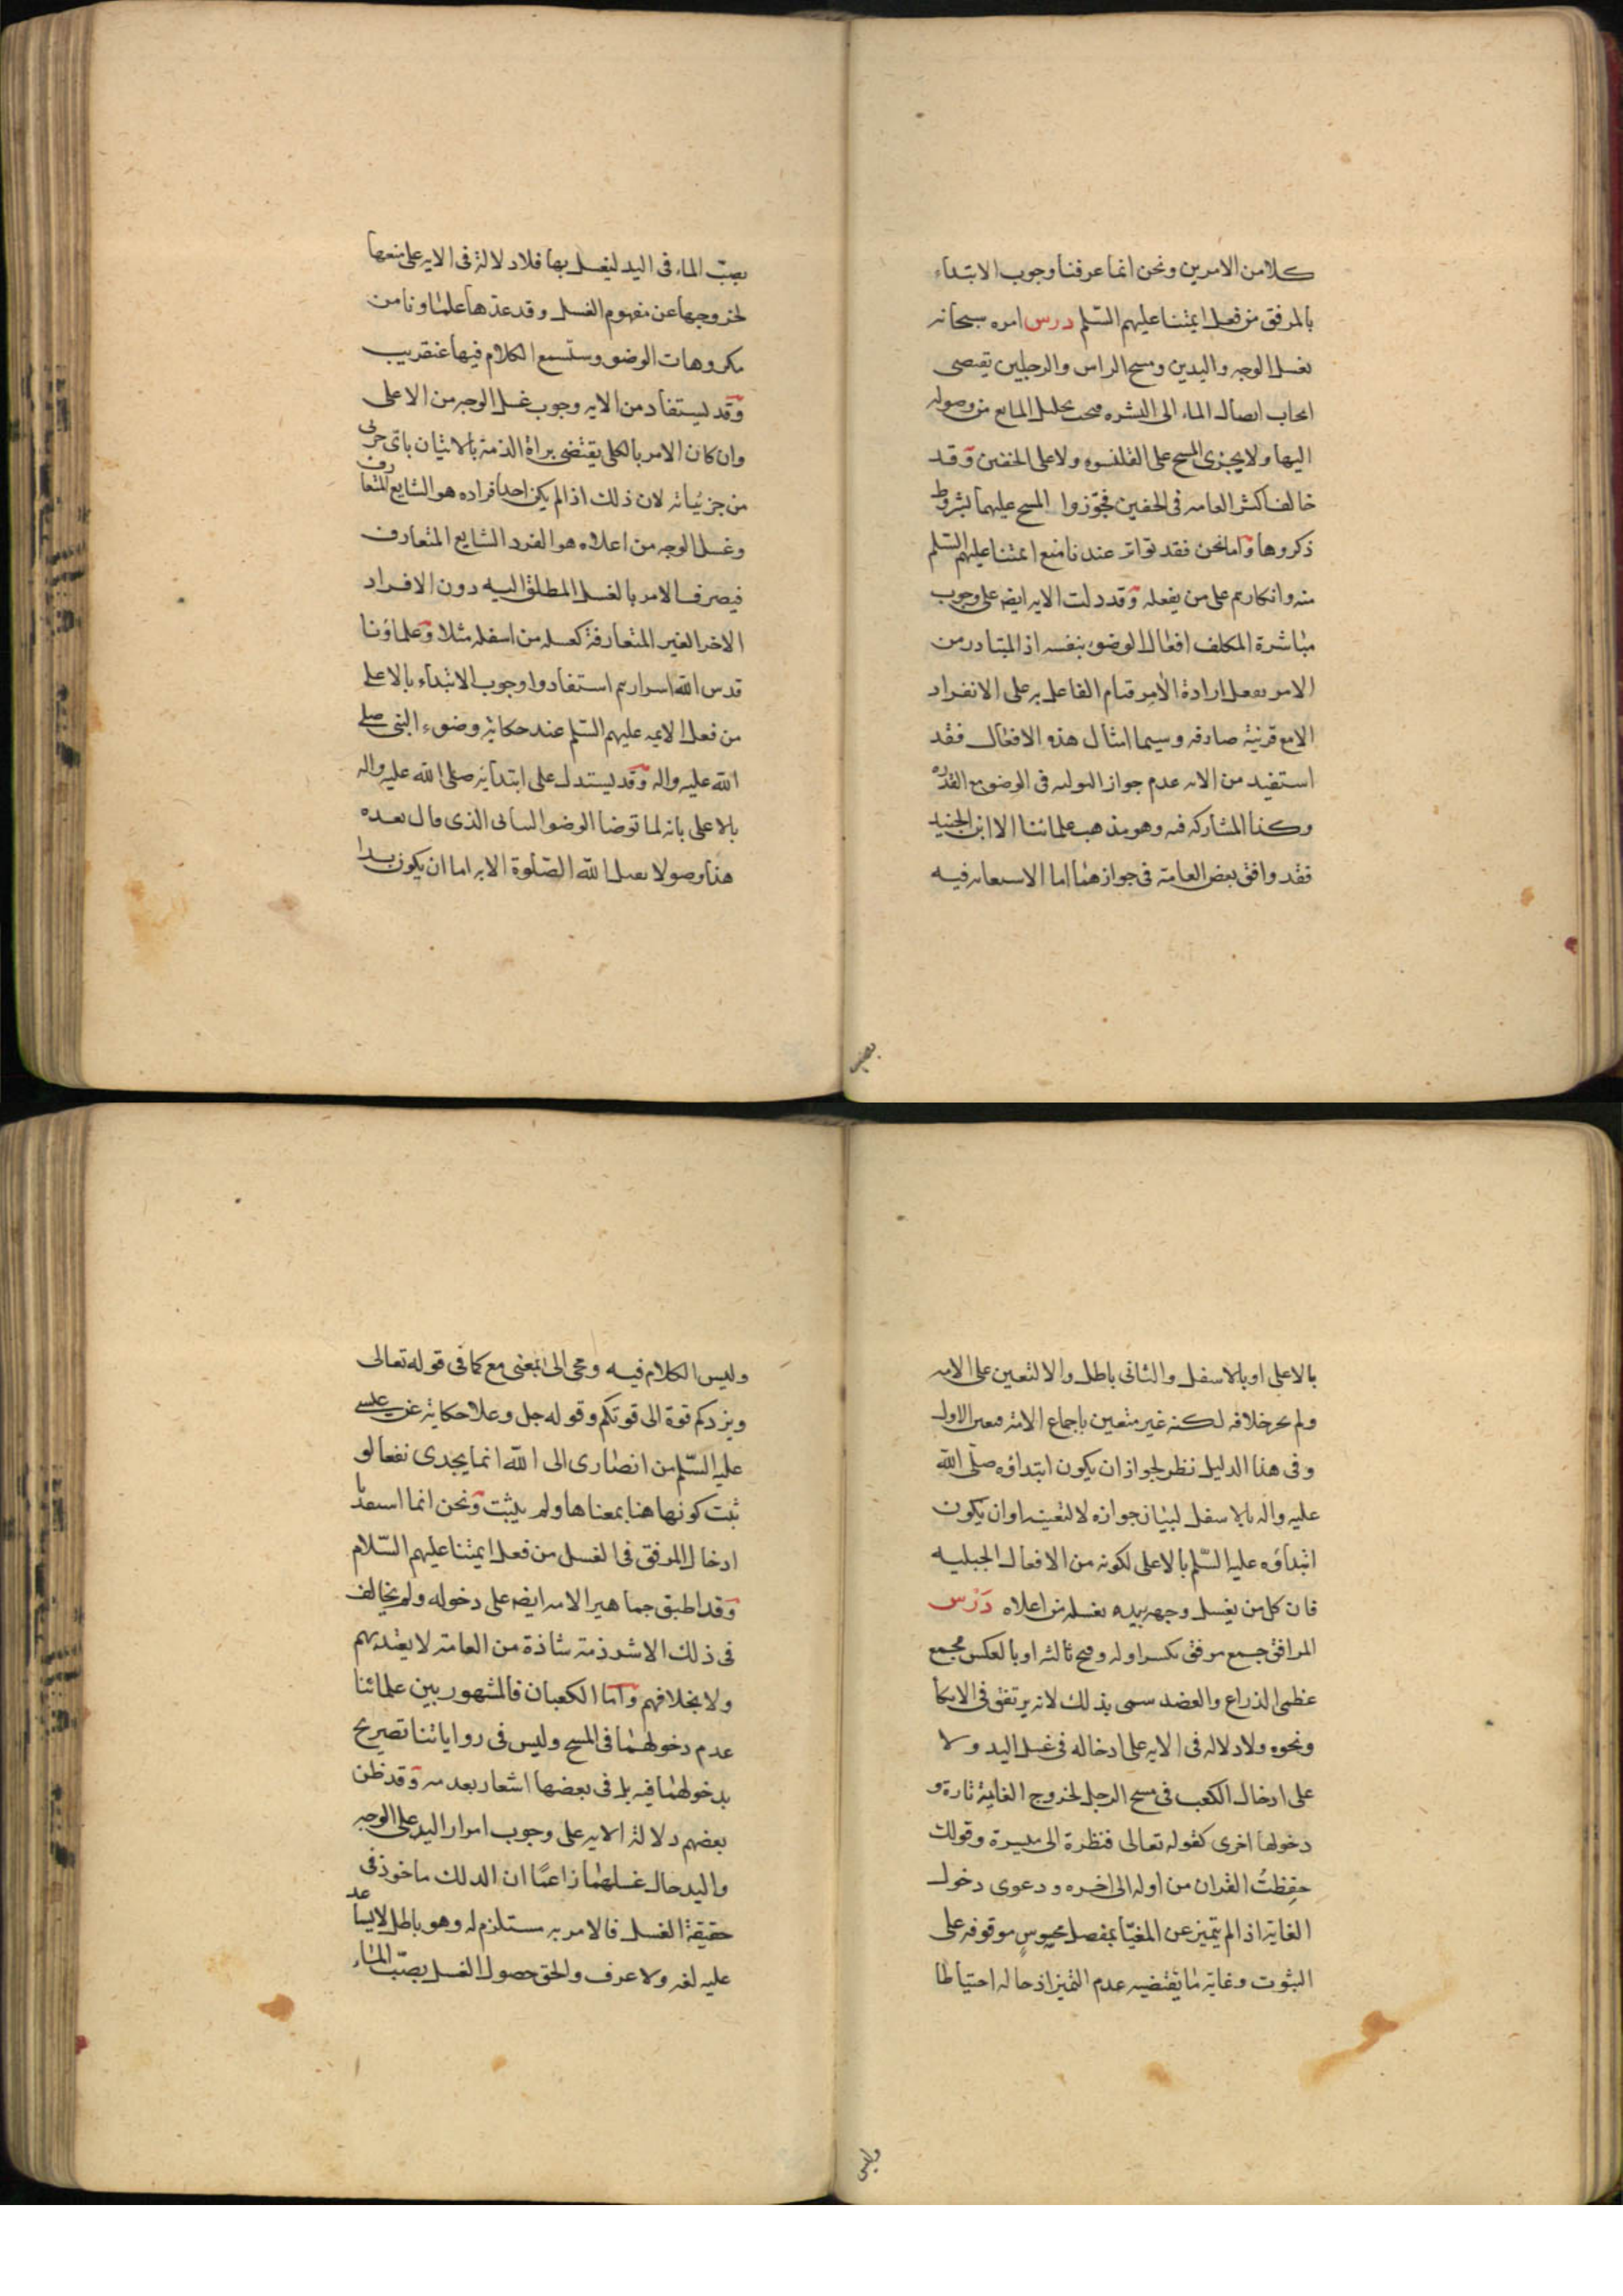 كلا من الامرين ونحن انما عرفنا وجوب الابتداء
بالمرفق من فعل ايمتنا عليهم السلم درس امره سبحانه
بغسل الوجه واليدين ومسح الراس والرجلين يقتضى
ايجاب ايصال الماء الى البشره فيجب تخليل المانع من وصوله
اليها ولا يجزى المسح على القلنسوه ولا على الخفين وقد
خالف اكثر العامه فى الخفين فجوّزوا المسح عليهما بشروط
ذكروها واما نحن فقد تواتر عندنا منع ائمتنا عليهم السلم
منه وانكارهم على من يفعله وقد دلت الايه ايض على وجوب
مباشرة المكلف افعال الوضوء بنفسه اذ المتبادر من
الامر بفعل ارادة الآمر قيام الفاعل به على الانفراد
الا مع قرينة صارفه وسيما امثال هذه الافعال فقد
استفيد من الايه عدم جواز التوليه فى الوضوء مع القدره
وكذا المشاركه فيه وهو مذهب علمائنا الا ابن الجنيد
فقد وافق بعض العامة فى جوازهما اما الاستعانه فيه
بصبّ
بصبّ الماء فى اليد ليغسل بها فلا دلالة فى الايه على منعها
لخروجها عن مفهوم الغسل وقد عدّها علماونا من
مكروهات الوضو وستسمع الكلام فيها عنقريب
وقد يستفاد من الايه وجوب غسل الوجه من الاعلى
وان كان الامر بالكلى يقتضى براة الذمة بالاتيان باىّ جزئى
من جزئياته لان ذلك اذا لم يكن احد افراده هو الشايع المتعارف
وغسل الوجه من اعلاه هو الفرد الشايع المتعارف
فيصرف الامر بالغسل المطلق اليه دون الافراد
الاخر الغير المتعارفة كغسله من اسفله مثلا وعلماؤنا
قدس الله اسرارهم استفادوا وجوب الابتداء بالاعلى
من فعل الايمه عليهم السّلم عند حكاية وضوء النبى صلى
الله عليه واله وقد يستدل على ابتدائه صلى الله عليه واله
بالاعلى بانه لما توضا الوضو البيانى الذى قال بعده
هذا وضو لا يقبل الله الصّلوة الا به اما ان يكون بدا
بالاعلى او بالاسفل والثانى باطل والا لتعين على الامه
ولم يجز خلافه لكنه غير متعين باجماع الامة فتعين الاول
وفى هذا الدليل نظر لجواز ان يكون ابتداؤه صلّى الله
عليه واله بالاسفل لبيان جوازه لا لتعينه او ان يكون
ابتداؤه عليه السّلم بالاعلى لكونه من الافعال الجبليه
فان كل من يغسل وجهه بيده يغسله من اعلاه درس
المرافق جمع مرفق بكسر اوله وفتح ثالثه او بالعكس مجمع
عظمى الذراع والعضد سمى بذلك لانه يرتفق فى الاتكا
ونحوه ولا دلاله فى الايه على ادخاله فى غسل اليد ولا
على ادخال الكعب فى مسح الرجل لخروج الغاية تارة و
دخولها اخرى كقوله تعالى فنظرة الى ميسرة وقولك
حفظتُ القران من اوله الى اخره ودعوى دخول
الغاية اذا لم يتميز عن المغيّا بمفصل محسوس موقوفه على
الثبوت وغاية ما يقتضيه عدم التميز ادخاله احتياطا
وليس
وليس الكلام فيه ومجى الى بمعنى مع كما فى قوله تعالى
ويزدكم قوة الى قوتكم وقوله جل وعلا حكاية عن عيسى
عليه السّلم من انصارى الى الله انما يجدى نفعا لو
ثبت كونها هنا بمعناها ولم يثبت ونحن انما استفدنا
ادخال المرفق فى الغسل من فعل ايمتنا عليهم السّلام
وقد اطبق جماهير الامه ايض على دخوله ولم يخالف
فى ذلك الا شرذمة شاذة من العامة لا يعتد بهم
ولا بخلافهم وامّا الكعبان فالمشهور بين علمائنا
عدم دخولهما فى المسح وليس فى رواياتنا تصريح
بدخولهما فيه بل فى بعضها اشعار بعدمه وقد ظن
بعضهم دلالة الايه على وجوب امرار اليد على الوجه
واليد حال غسلهما زاعمًا ان الدلك ماخوذ فى
حقيقة الغسل فالامر به مستلزم له وهو باطل لا يساعد
عليه لغه ولا عرف والحق حصول الغسل بصبّ الماء